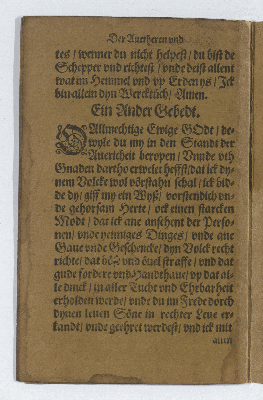 Der Auerheren vnd
tes / wenner du nicht helpest / du bist de
Schepper vnd richtest / vnde deist allent
wat im Hemmel vnd vp Erden ys / Ick
bin allein dyn Wercktüch / Amen.
Ein Ander Gebedt.
O Allmechtige Ewige GOdt / de-
wyle du my in den Standt der
Auericheit beropen / Vnnde vth
Gnaden dartho erwelet heffst / dat ick dy-
nem Volcke wol vörstahn schal / ick bid-
de dy / giff my ein Wyß / vorstendich vn-
de gehorsam Herte / ock einen starcken
Modt / dat ick ane ansehent der Perso-
nen / vnde jenniges Dinges / vnde ane
Gaue vnde Geschencke / dyn Volck recht
richte / dat böß vnd öuel straffe / vnd dat
gude fordere vnd Handthaue / vp dat al-
le dinck / in aller Tucht vnd Ehrbarheit
erholden werde / vnde du im Frede dorch
dynen leuen Söne in rechter Lere er-
kandt / vnde geehret werdest / vnd ick mit